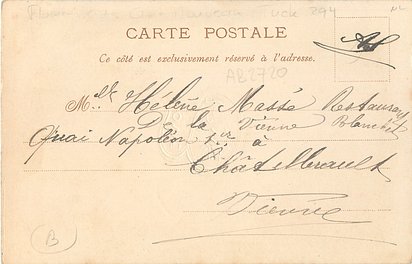 294
CARTE POSTALE
Ce côté est exclusivement réservé à l'adresse.
AB2720
Mlle Hélène Massé Restaurant
De la Vienne Blanchet
Quai Napoléon 1er à
Châtellerault
Vienne
B